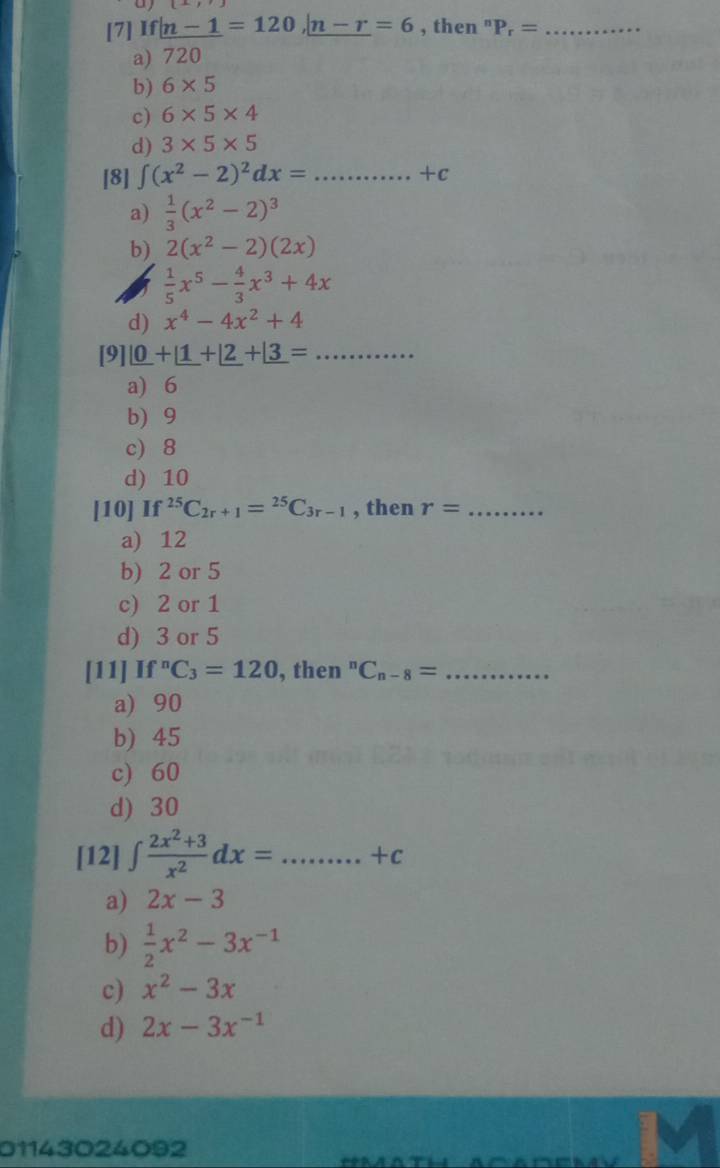 [7] If |n − 1 = 120 , |n − r = 6 , then ⁿPᵣ = ............
a) 720
b) 6 × 5
c) 6 × 5 × 4
d) 3 × 5 × 5
[8] ∫(x² − 2)² dx = ............ +c
a) 1/3 (x² − 2)³
b) 2(x² − 2)(2x)
1/5 x⁵ − 4/3 x³ + 4x
d) x⁴ − 4x² + 4
[9] |0 + |1 + |2 + |3 = ............
a) 6
b) 9
c) 8
d) 10
[10] If ²⁵C₂ᵣ ₊ ₁ = ²⁵C₃ᵣ ₋ ₁ , then r = .........
a) 12
b) 2 or 5
c) 2 or 1
d) 3 or 5
[11] If ⁿC₃ = 120, then ⁿCₙ ₋ ₈ = ............
a) 90
b) 45
c) 60
d) 30
[12] ∫ (2x²+3)/x² dx = ......... +c
a) 2x − 3
b) 1/2 x² − 3x⁻¹
c) x² − 3x
d) 2x − 3x⁻¹
01143024092
#MATH ACADEMY